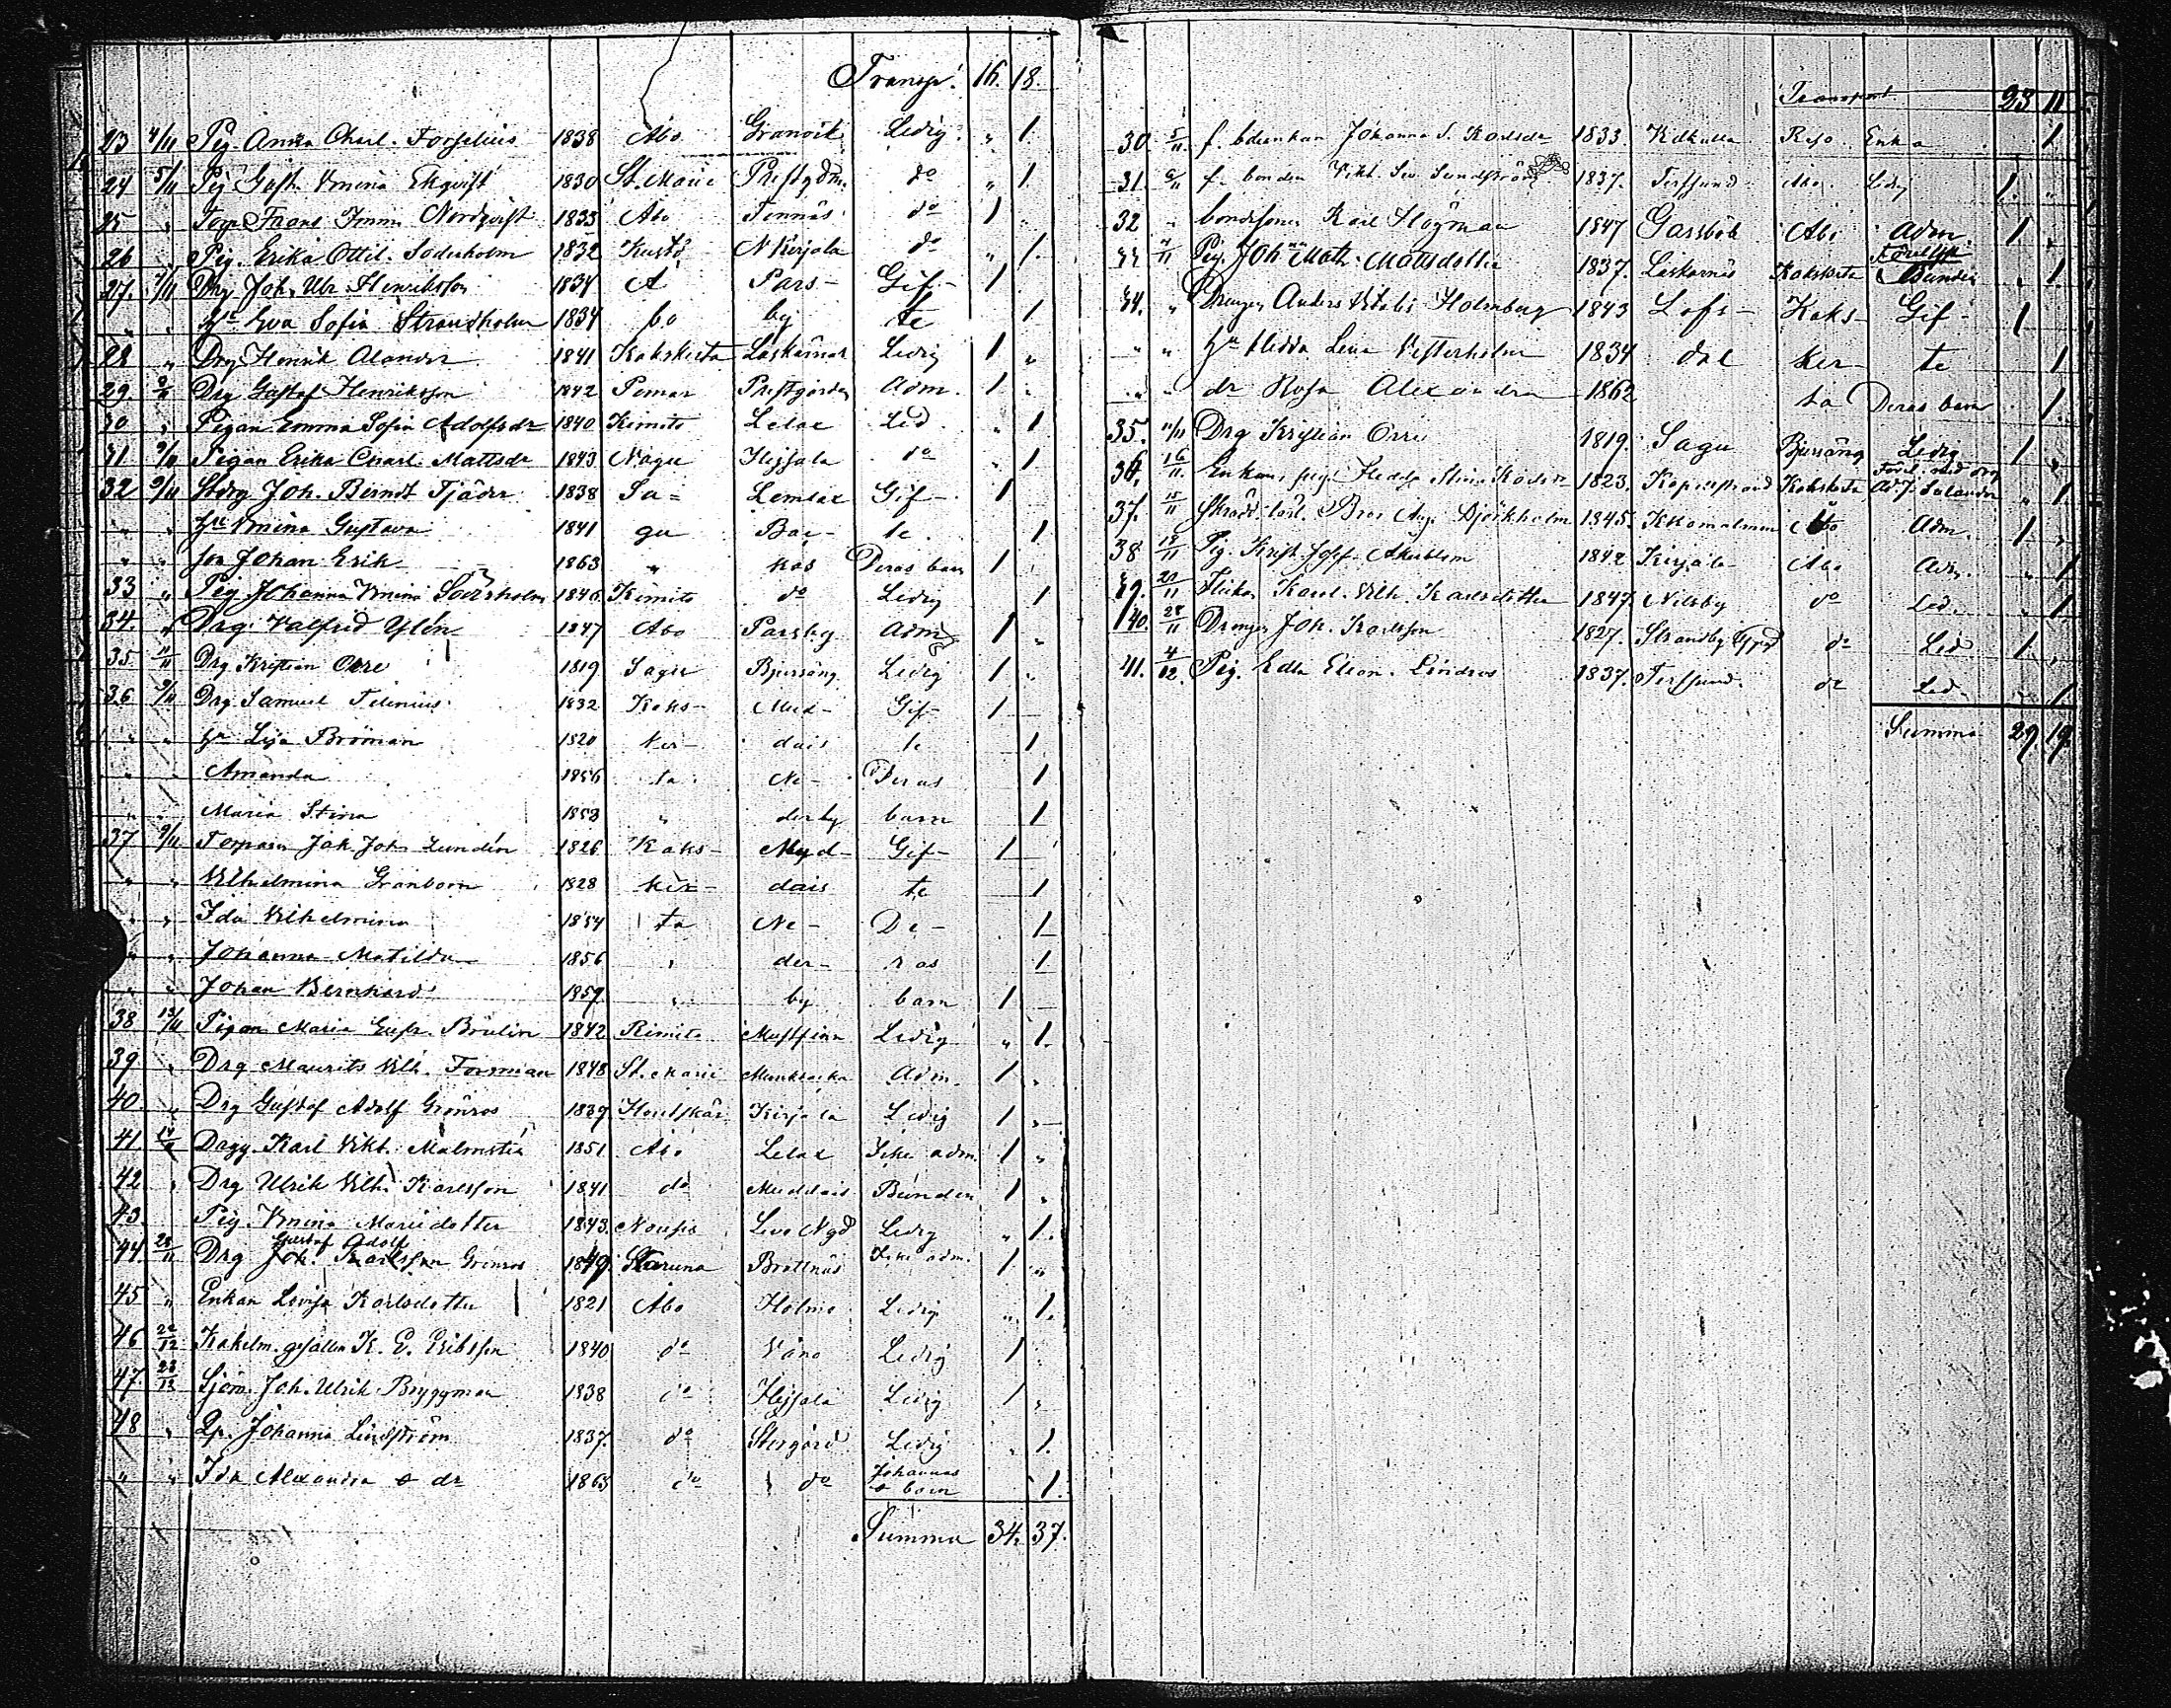 Transp. 16. 18.
23 4/11 Pig. Anna Charl. Forselius 1838 Åbo Granvik Ledig. " 1.
24 5/11 Pig Gust. Vmina Ekqvist 1830 St. Marie Prestgdn. do " 1.
25 " Torp. Frans Imm. Nordqvist 1833 Åbo Tennäs do 1 "
26 " Pig. Erika Ottil. Söderholm 1832 Kustö N Kirjala do " 1.
27. 7/11 Drg Joh. Ulr. Henriksson 1834 Å Pars- Gif- 1
" " Hu Eva Sofia Strandholm 1834 bo by te 1
28 " Drg Henrik Alander 1841 Kakskerta Laskarnäs Ledig 1 "
29. 9/11 Drg Gustaf Henriksson 1842 Pemar Prestgården Adm. 1 "
30 " Pigan Emma Sofia Adolfsdr 1840 Kimito Lelax Led. " 1
31 9/11 Pigan Erika Charl. Mattsdr 1843 Nagu Hejsala do " 1.
32 9/11 Stdrg Joh. Berndt Tjäder 1838 Sa- Lemlax Gif- 1
" " Hu Vmina Gustava 1841 gu Bac- te. 1
" " son Johan Erik 1863 " kas Deras barn 1
33 " Pig Johanna Vmina Söderholm 1846. Kimito do Ledig 1
34. " Drg. Valfrid Ylén 1847 Åbo Parsby Adm 1 "
35 11/11 Drg Kristian Orre 1819 Sagu Bjursäng Ledig 1 "
36 9/11 Drg. Samuel Felenius 1832 Kaks- Mud- Gif- 1
" " Hu Lisa Bröman 1820 ker- dais te 1
" " Amanda 1856 ta Ne- Deras 1
" " Maria Stina 1853 " derby barn 1
37 9/11 Torparen Joh. Joh. Lundén 1826 Kaks- Myd- Gif- 1
" " Vilhelmina Granbom 1828 ker- dais te 1
" " Ida Vilhelmina 1854 ta Ne- De- 1
" " Johanna Matilda 1856 " der- ras 1
" " Johan Bernhard 1859 " by barn 1
38 13/11 Pigan Maria Eufr. Brulin 1842 Rimito Mustfinn Ledig " 1.
39 " Drg Maurits Vilh. Forsman 1848 St. Marie Munkvacka Adm. 1 "
40 " Drg Gustaf Adolf Grönros 1839 Houtskär Kirjala Ledig 1 "
41. 14/11 Drgg. Karl Vikt. Malmstén 1851 Åbo Lelax Icke adm. 1 "
42 " Drg Ulrik Vilh. Karlsson 1841 do Muddais Bunden 1 "
43. Pig. Vmina Mariedotter 1843. Nousis Levo Ngd Ledig " 1.
Gustaf Adolf
44. 28/11 Drg Joh. Karlsson Grönros 1849. Karuna Brattnäs Icke adm. 1 "
45 " Enkan Lovisa Karlsdotter 1821 Åbo Holmo Ledig " 1.
46 22/12 Kakelm. gesällen K. E. Eriksson 1840 do Väno Ledig 1 "
47. 23/12 Sjöm. Joh. Ulrik Bryggman 1838 do Hejsala Ledig 1 "
48 " Qp. Johanna Lindström 1837. do Storgård Ledig " 1.
" " Ida Alexandra o dr 1863 do do Johannas o barn 1.
Summa 34. 37.
Transport 23 11
30. 5/11. f. bdeenkan Johanna S. Karlsdr 1833. Kilkulla Reso Enka 1
31. 6/11 f. bonden Vikt. Sev. Sundström 1837. Terssund Åbo Ledig 1. "
32 " bondsonen Karl Högman 1847 Gassböle Åbo Adm 1 "
33 7/11 Pig. Johna Math. Mattsdotter 1837. Laskarnäs Kakskerta Bunden " 1.
34. " Drengen Anders Vitalis Holmberg 1843 Lofs- Kaks- Gif- 1
" " Hu Hedda Lena Vesterholm 1834 dal ker- te 1
" " dr Rosa Alexandra 1862 ta Deras barn 1
35. 11/11 Drg Kristian Orre 1819. Sagu Bjursäng Ledig 1 "
36. 16/11. Enkans Hedda Stina 1823. Kapellstrand Kakskerta " 1
37. 15/11 Skrädd. lärl. Bror Aug. Björkholm 1845. Kkomalmen Åbo Adm. 1 "
38 18/11 Pig. Krist. Josef. Åkerblom 1842 Kirjala Åbo Adm. " 1
39. 21/11 Flickan Karol. Vilh. Karlsdotter 1847. Nilsby do Led. " 1
40. 28/11 Drengen Joh. Karlsson 1827. Strandby do Led 1 "
41. 4/12. Pig. Edla Eleon. Lindros 1837. Terssund. do Led. " 1
Summa 29. 19.